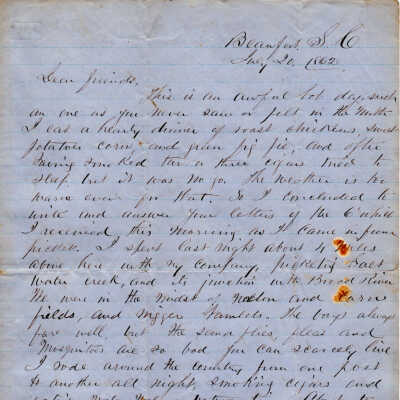 Beaufort, S. C
July 20, 1862
Dear friends,
This is an awful hot day, such
an one as you never saw or felt in the North
I eat a hearty dinner of roast chickens, sweet
potatoes corn, and green pig pie, and after
having smoked two or three cigars tried to
sleep, but it was no go. The weather is too
warm even for that. So I concluded to
write and answer your letters of the 6" which
I received this morning as I came in from
picket. I spent last night about 4 miles
above here with my company, picketing
Water creek, and its junction with Broad River
We were in the midst of melon and corn
fields, and nigger hamlets. The boys always
fare well, but the sand flies, fleas and
Mosquitoes are so bad you can scarcely live
I rode around the country from one post
to another all night, smoking cigars and